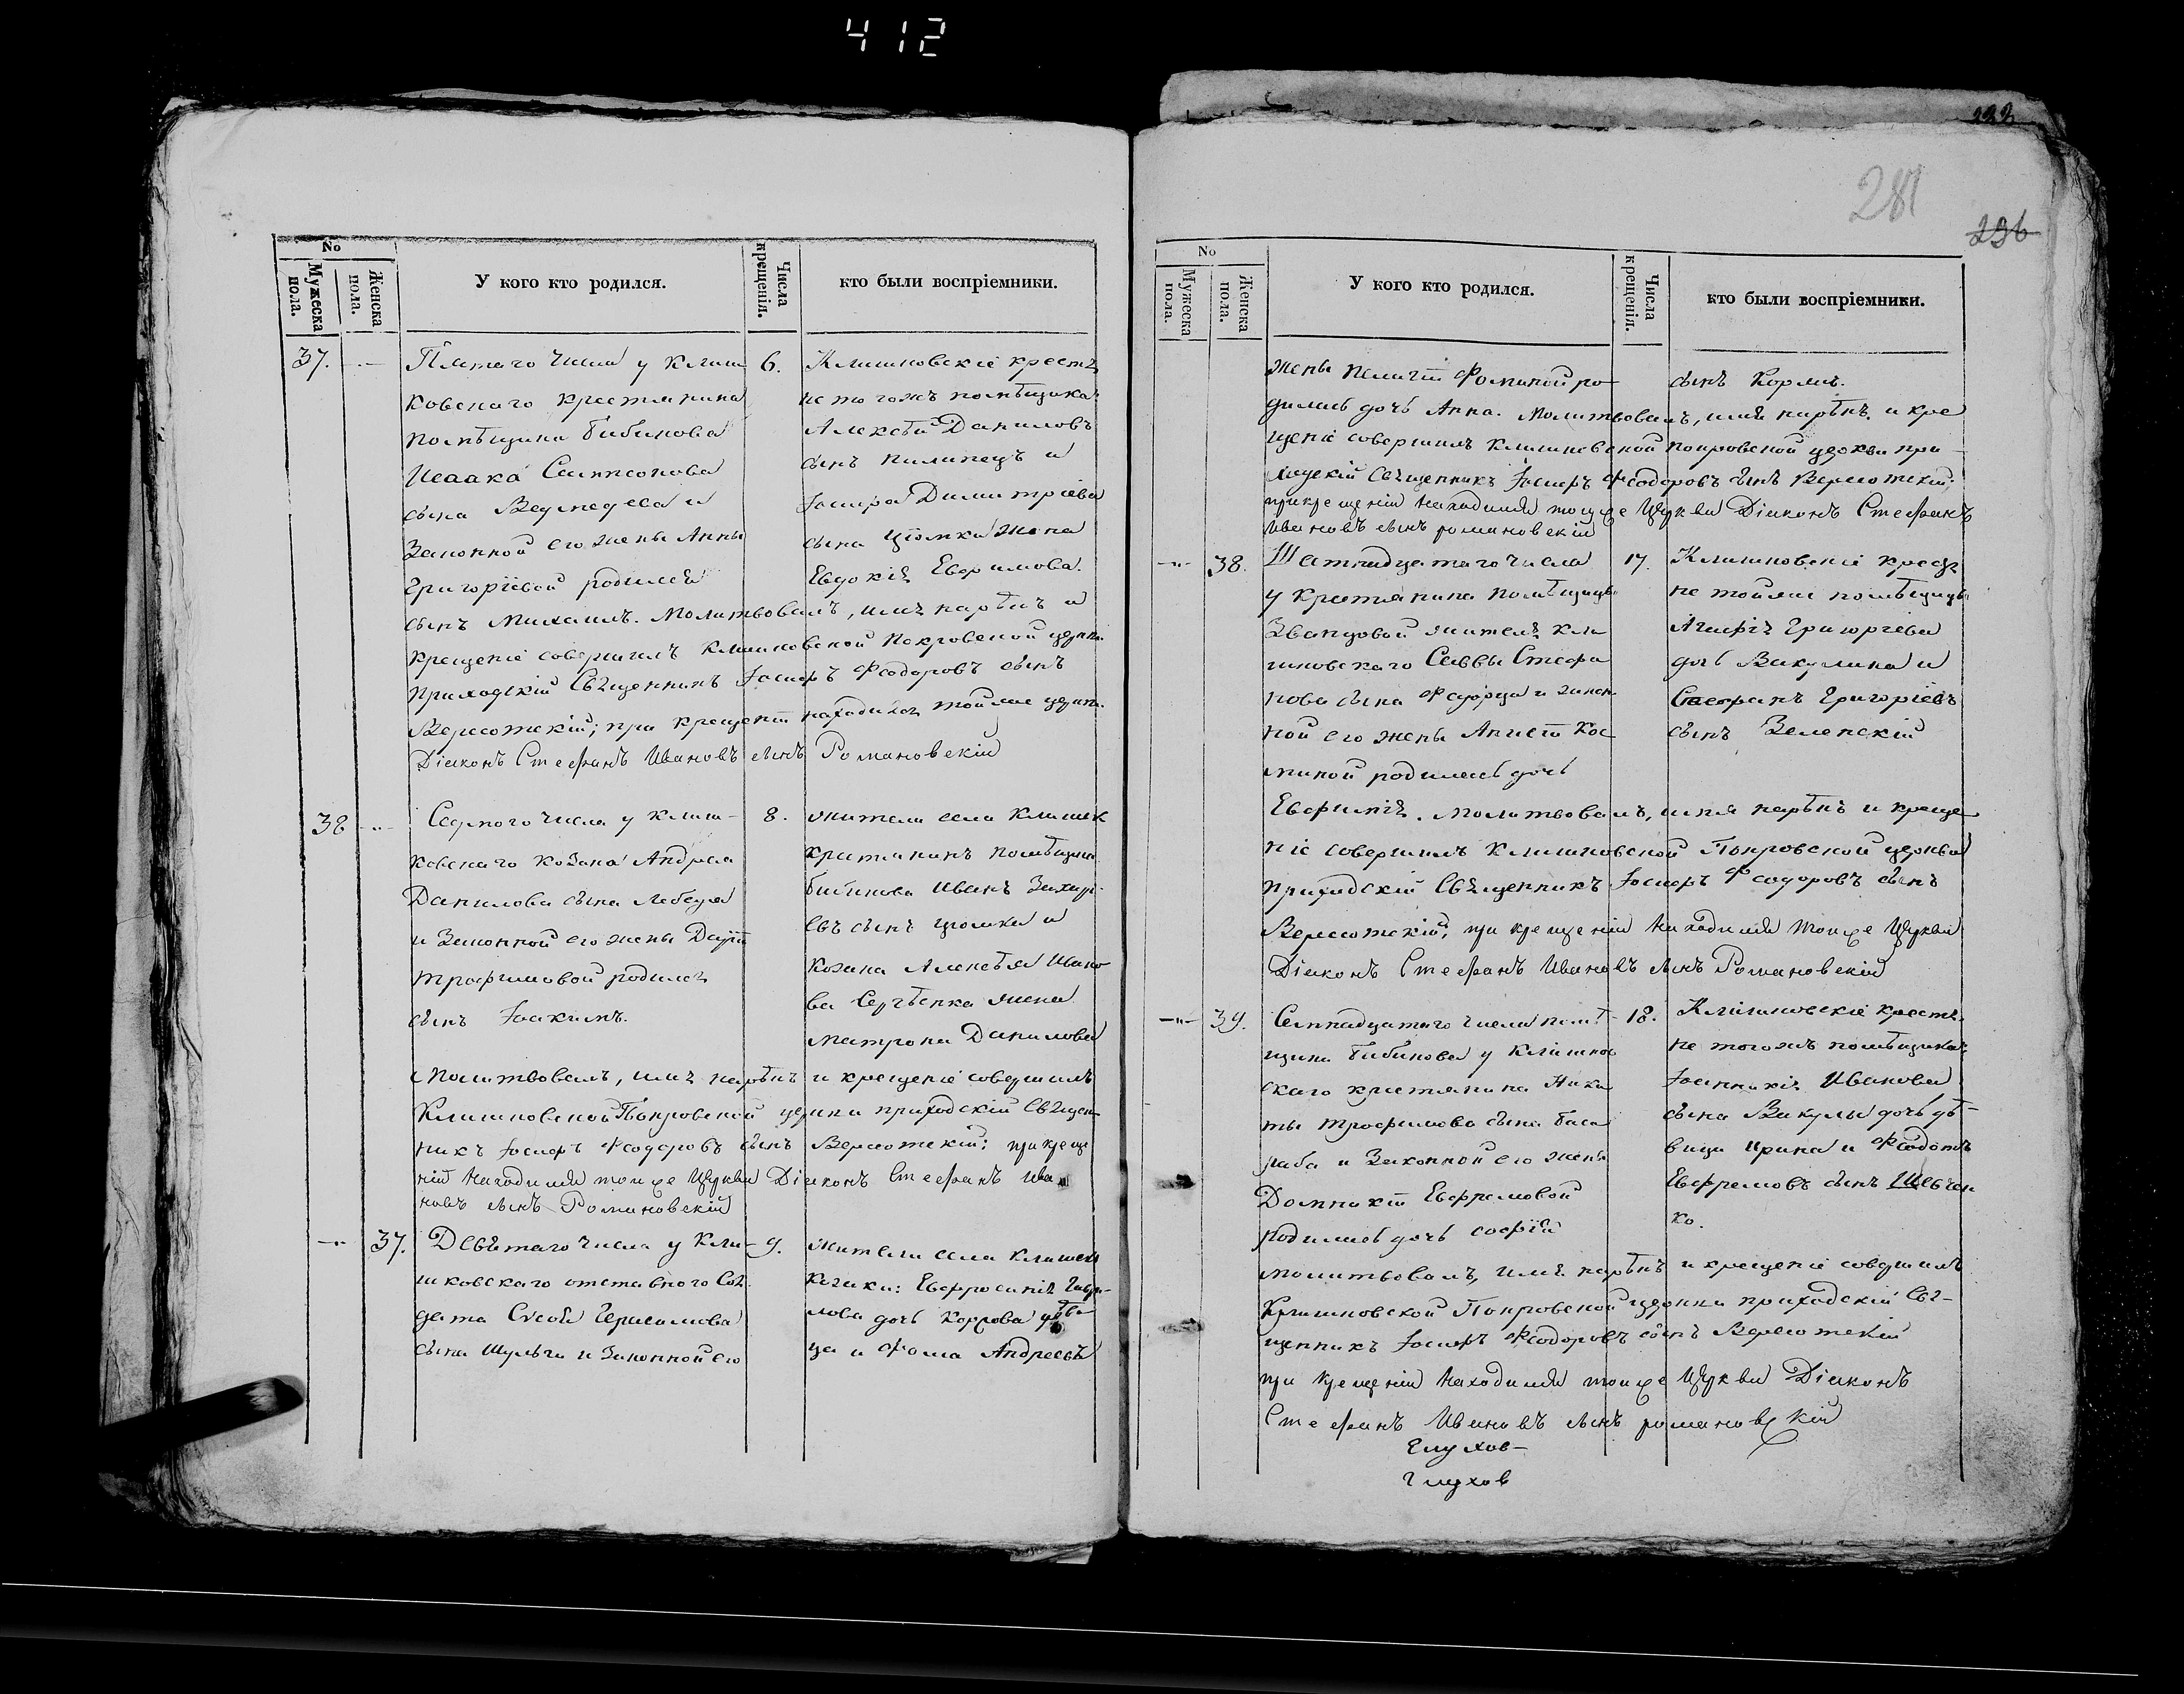 412
No
Мужеска пола.
Женска пола.
У кого кто родился.
Числа крещенія.
кто были воспріемники.
37.
Пятаго числа у Клиш
ковскаго крестянина
помѣщика Бибикова
Исаака Сампсонова
сына Ведмедева и
Законной его жены Анны
Григоріевой родился
сынъ Михаилъ. Молитвовалъ, имя нарѣкъ и
крещеніе совершилъ Клишковской Покровской церкви
Приходскій Священникъ Іосифъ Феодоровъ сынъ
Вересотскій; при крещеніи находился тойже церкви
Діаконъ Стефанъ Ивановъ сынъ Романовскій
6.
Клишковскіе крестя
не тогожъ помѣщика:
Алексѣй Даниловъ
сынъ Пилипецъ и
Іосифа Димитріева
сына Ціомки жена
Евдокія Ефимова.
38
Седмого числа у Клиш-
ковскаго козака Андрея
Данилова сына Лебедя
и Законной его жены Даріи
Трофимовой родился
сынъ Іоакимъ.
Молитвовалъ, имя нарѣкъ и крещеніе совершилъ
Клишковской Покровской церкви приходскій Священ-
никъ Іосифъ Феодоровъ сынъ Вересотскій; при креще
ніи находился тоиже Церкви Діаконъ Стефанъ Ива
новъ сынъ Романовскій
8.
жители села Клишекъ
крестянинъ помѣщика
Бибикова Иванъ Захарі-
евъ сынъ Цюмка и
Козака Алексѣя Ивано
ва Сергѣенка жена
Матрона Данилова
37.
Девятаго числа у Кли-
шковскаго отставного Сол
дата Сисоя Герасимова
сына Шульги и Законной его
9.
Жители села Клишекъ
Козаки: Евфросинія Гаври-
лова дочь Карпова дѣви
ца и Фома Андреевъ
232
281
236
No
Мужеска пола.
Женска пола.
У кого кто родился.
Числа крещенія.
кто были воспріемники.
жены Пелагіи Фоминой ро-
дилась дочь Анна. Молитвовалъ, имя нарѣкъ и кре
щеніе совершилъ Клишковской Покровской церкви при-
ходскій Священникъ Іосифъ Феодоровъ сынъ Вересотскій;
при крещеніи находился тоиже Церкви Діаконъ Стефанъ
Ивановъ сынъ Романовскій
сынъ
38.
Шестнадцатаго числа
у крестянина помѣщицы
Званцовой жителя Кли
шковскаго Саввы Стефа
нова сына Федорца и закон
ной его жены Анны Кос
миной родилась дочь
Евфимія. Молитвовалъ, имя нарѣкъ и креще
ніе совершилъ Клишковской Покровской церкви
приходскій Священникъ Іосифъ Феодоровъ сынъ
Вересотскій; при крещеніи находился тоиже Церкви
Діаконъ Стефанъ Ивановъ сынъ Романовскій
17.
Клишковскіе крестя
не тойже помѣщицы
Агафія Григоріева
дочь Вакулина и
Стефанъ Григоріевъ
сынъ Зеленскій
39.
Семнадцатаго числа помѣ-
щика Бибикова у Клишков
скаго крестянина Ники
ты Трофимова сына Баса
раба и Законной его жены
Домникіи Ефремовой
родилась дочь Софія
молитвовалъ, имя нарѣкъ и крещеніе совершилъ
Клишковской Покровской церкви приходскій Свя-
щенникъ Іосифъ Феодоровъ сынъ Вересотскій
при крещеніи находился тоиже Церкви Діаконъ
Стефанъ Ивановъ сынъ Романовскій
18.
Клишковскіе крестя
не тогожъ помѣщика:
Іоанникія Иванова
сына Вакулы дочь дѣ-
вица Ирина и Феодотъ
Ефремовъ сынъ Шевчен
ко.
Глухов-
Глухов